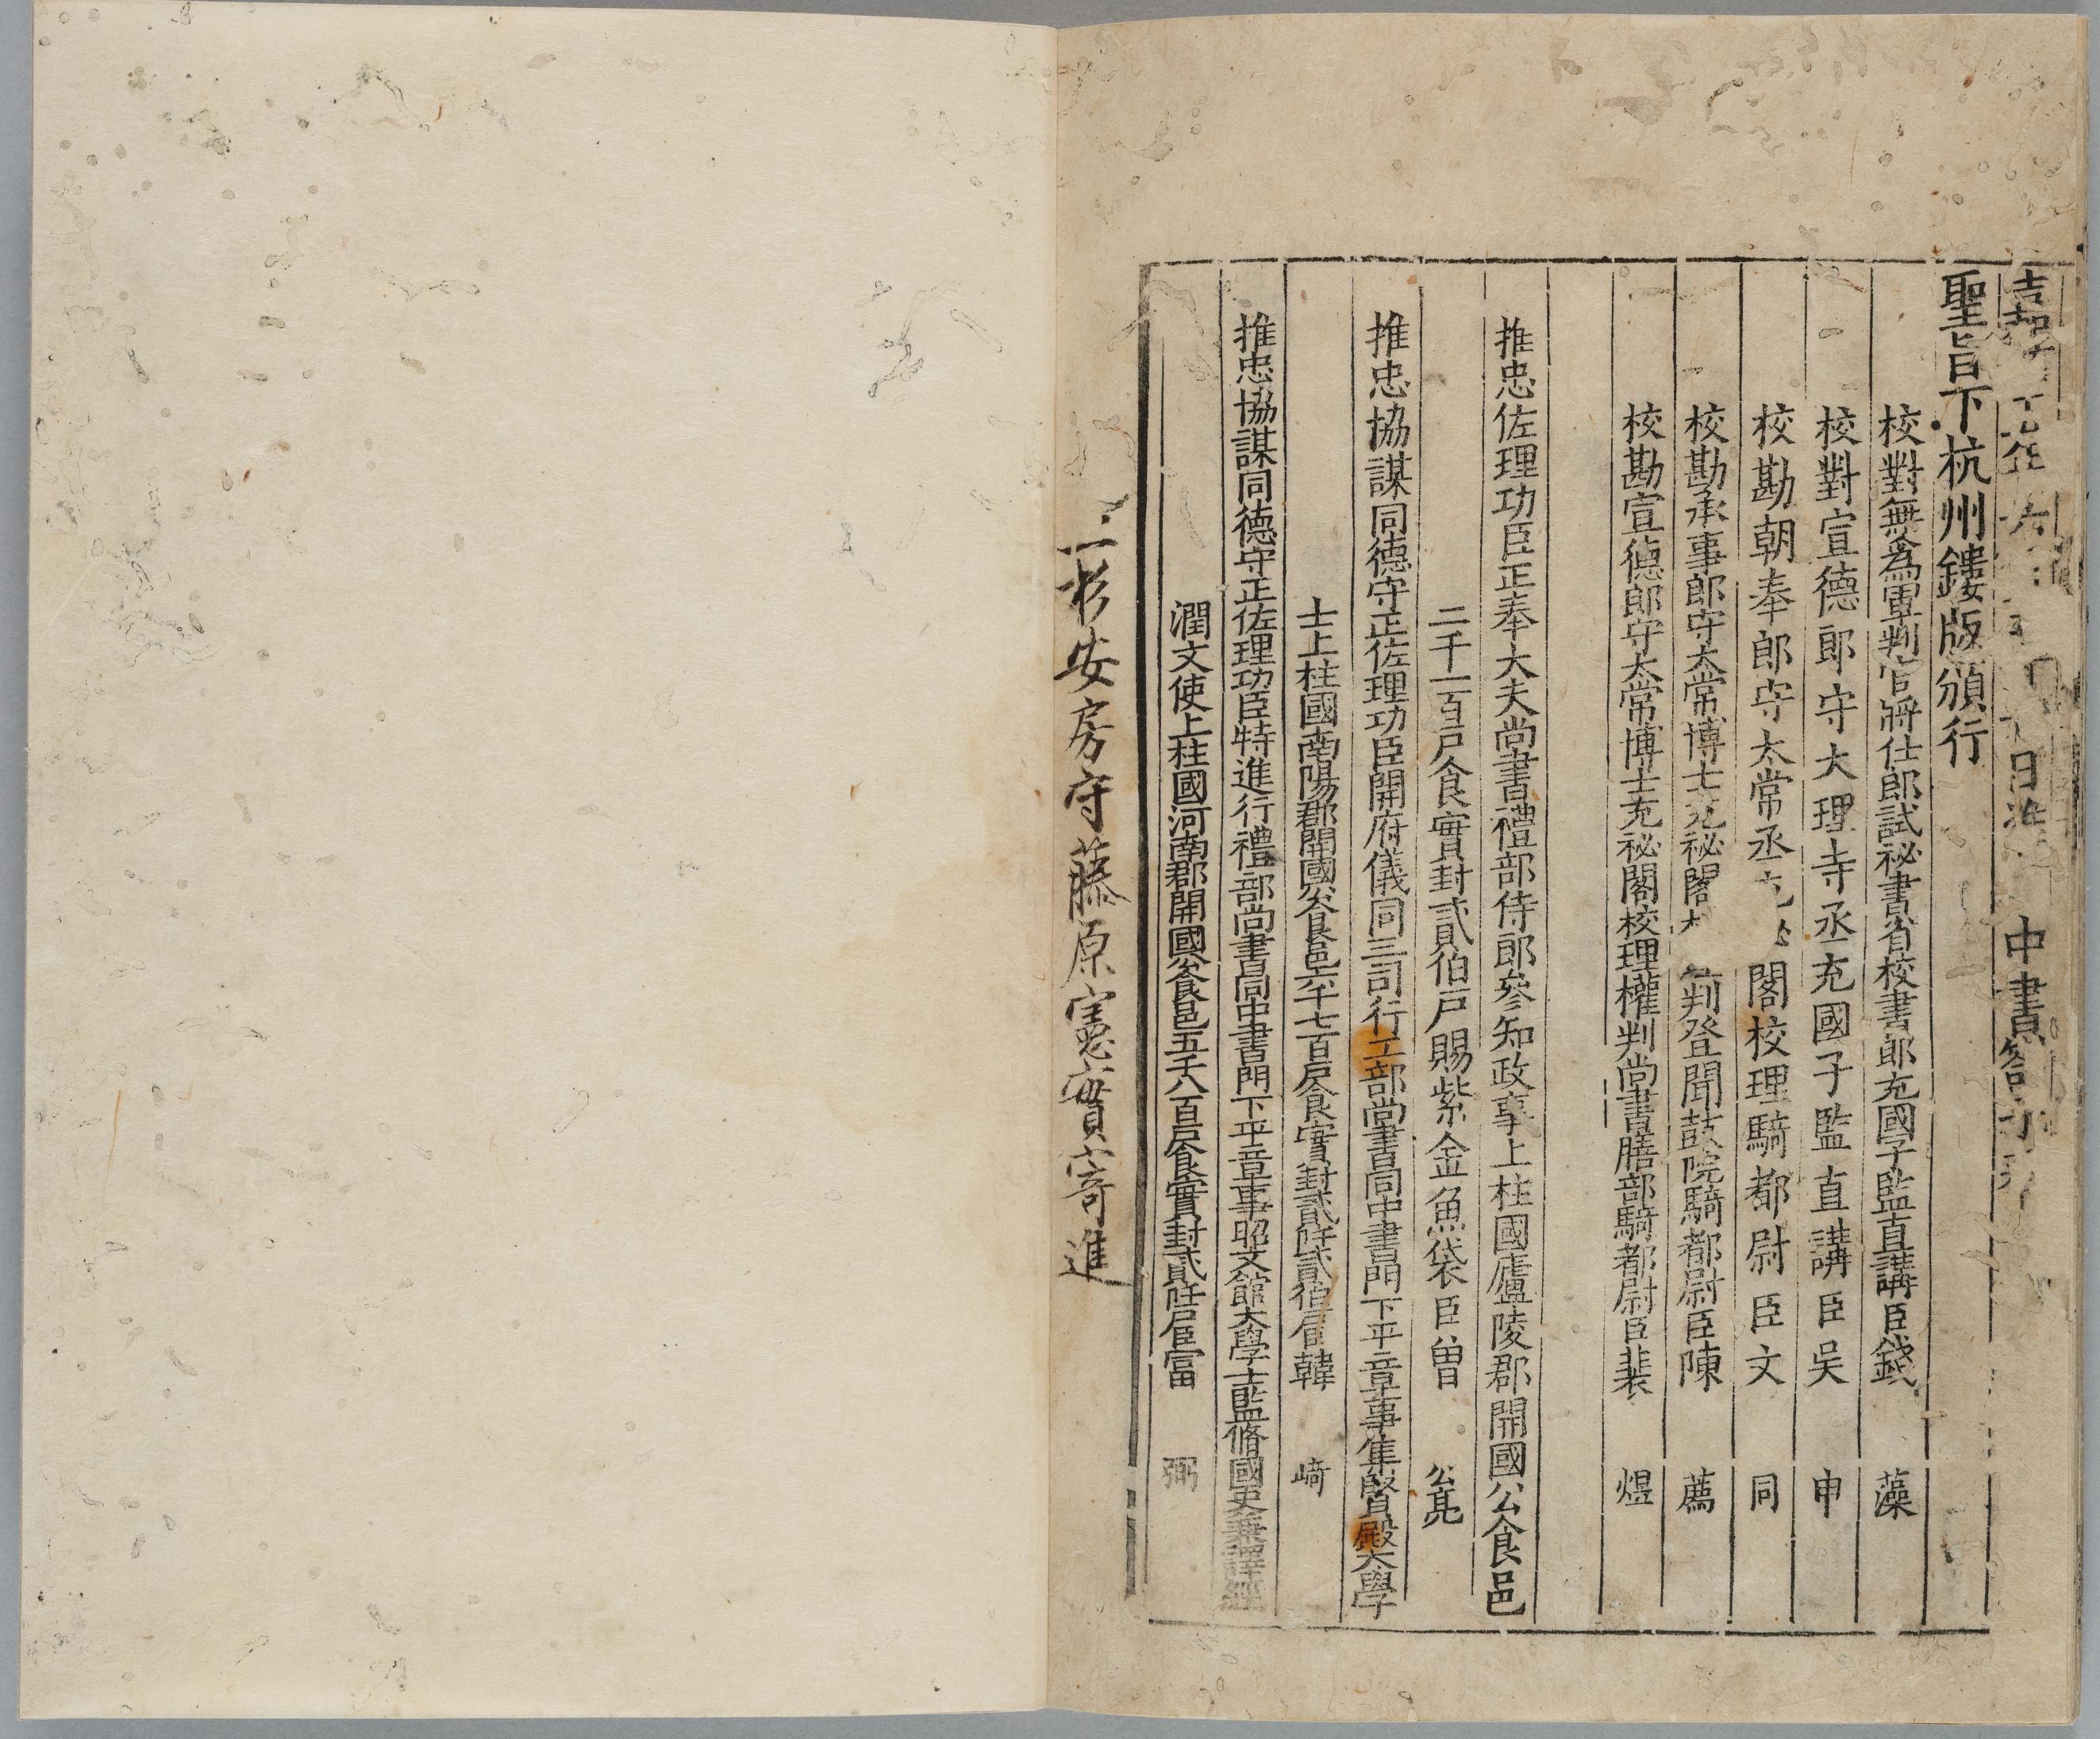 嘉 日准 中書
聖旨下杭州鏤版頒行
校對無爲軍判官將仕郎試祕書省校書郎充國子監直講臣錢 藻
校對宣德郎守大理寺丞充國子監直講臣吳 申
校勘朝奉郎守太常丞 閣校理騎都尉臣文 同
校勘承事郎守太常博士充祕閣 判登聞鼓院騎都尉臣陳 薦
校勘宣德郎守太常博士充祕閣校理權判尚書膳部騎都尉臣裴 煜
推忠佐理功臣正奉大夫尚書禮部侍郎參知政事上柱國廬陵郡開國公食邑
二千一百戶食實封貳伯戶賜紫金魚袋臣曾 公亮
推忠協謀同德守正佐理功臣開府儀同三司行工部尚書同中書門下平章事集賢殿大學
士上柱國南陽郡開國公食邑六千七百戶食實封貳阡貳伯戶臣韓 琦
推忠協謀同德守正佐理功臣特進行禮部尚書同中書門下平章事昭文館大學士監脩國史兼譯經
潤文使上柱國河南郡開國公食邑五千八百戶食實封貳阡戶臣富 弼
上杉安房守藤原憲實寄進